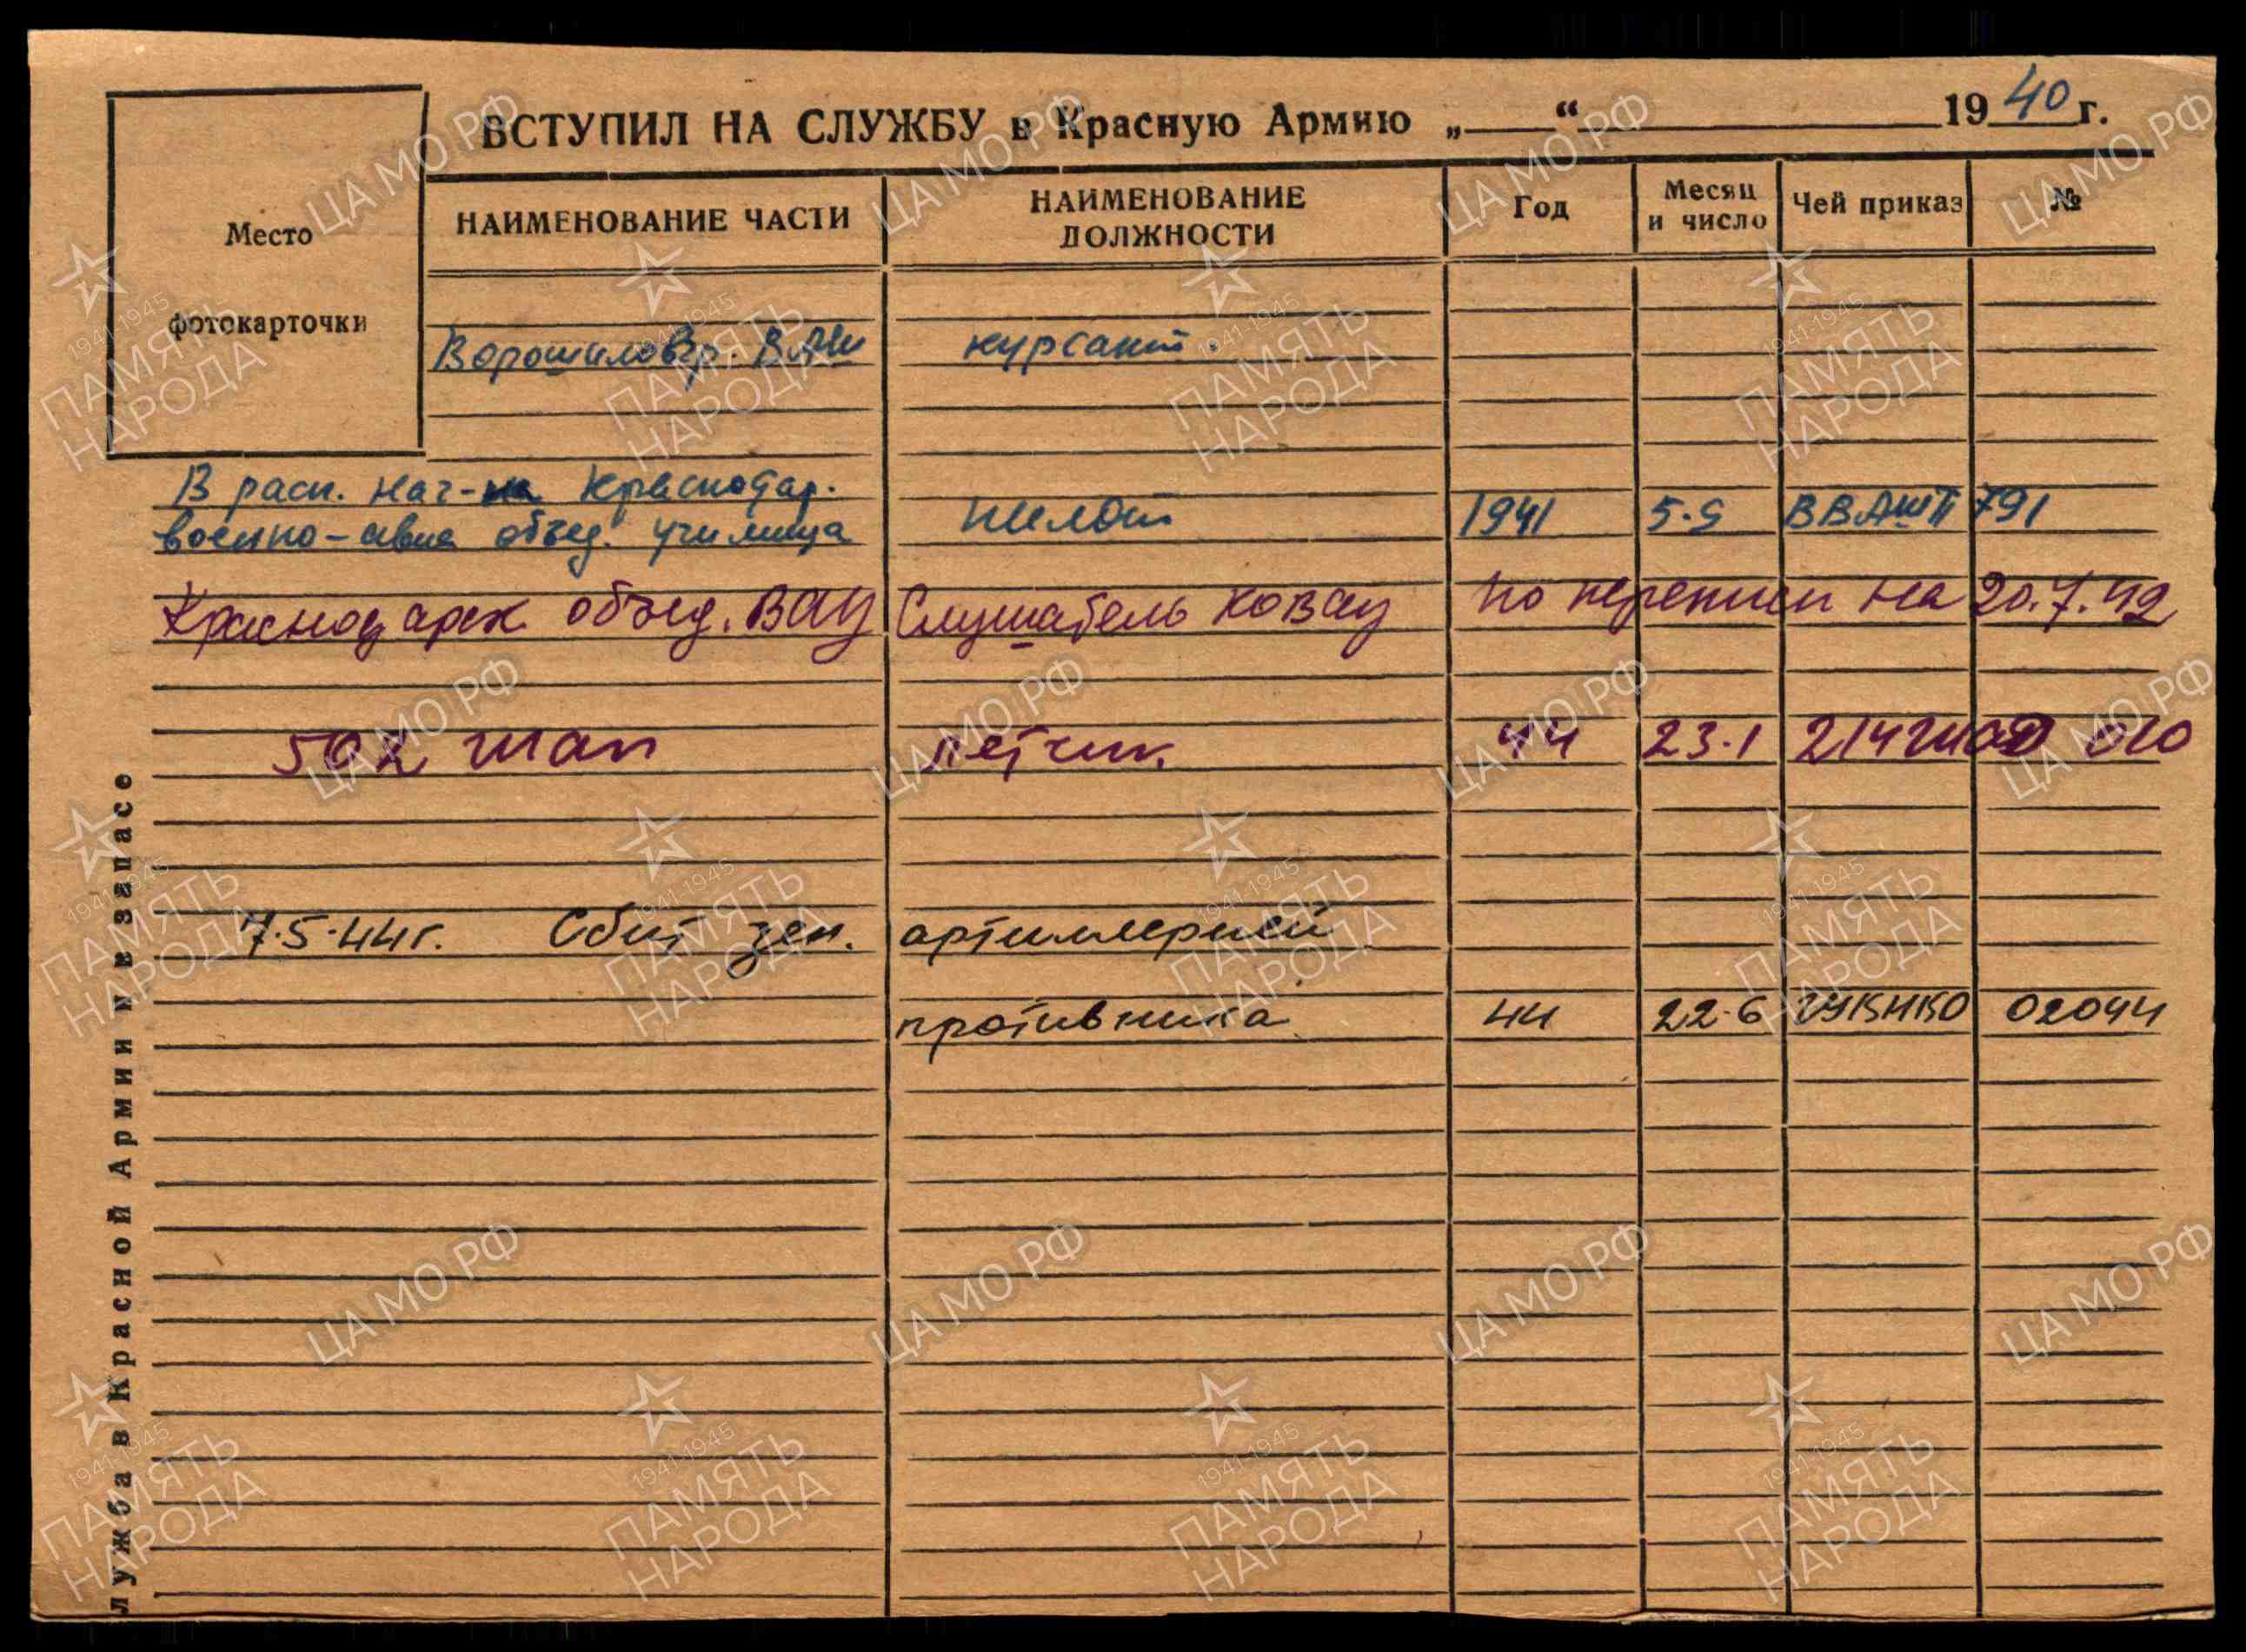 ВСТУПИЛ НА СЛУЖБУ в Красную Армию „ “ 1940 г.
Место
фотокарточки
НАИМЕНОВАНИЕ ЧАСТИ
НАИМЕНОВАНИЕ
ДОЛЖНОСТИ
Год
Месяц
и число
Чей приказ
№
Ворошиловгр. ВАШ курсант.
В расп. нач-ка Краснодар.
военно-авиа объед. училища пилот 1941 5.5 ВВАШП 791
Краснодарск. объед. ВАУ Слушатель КОВАУ по переписи на 20.7.42
502 шап летчик. 44 23.1 214 шад 010
7.5.44г. Сбит зен. артиллерией
противника 44 22.6 ГУКНКО 02044
лужба в Красной Армии и в запасе
ЦА МО РФ
1941-1945
ПАМЯТЬ
НАРОДА